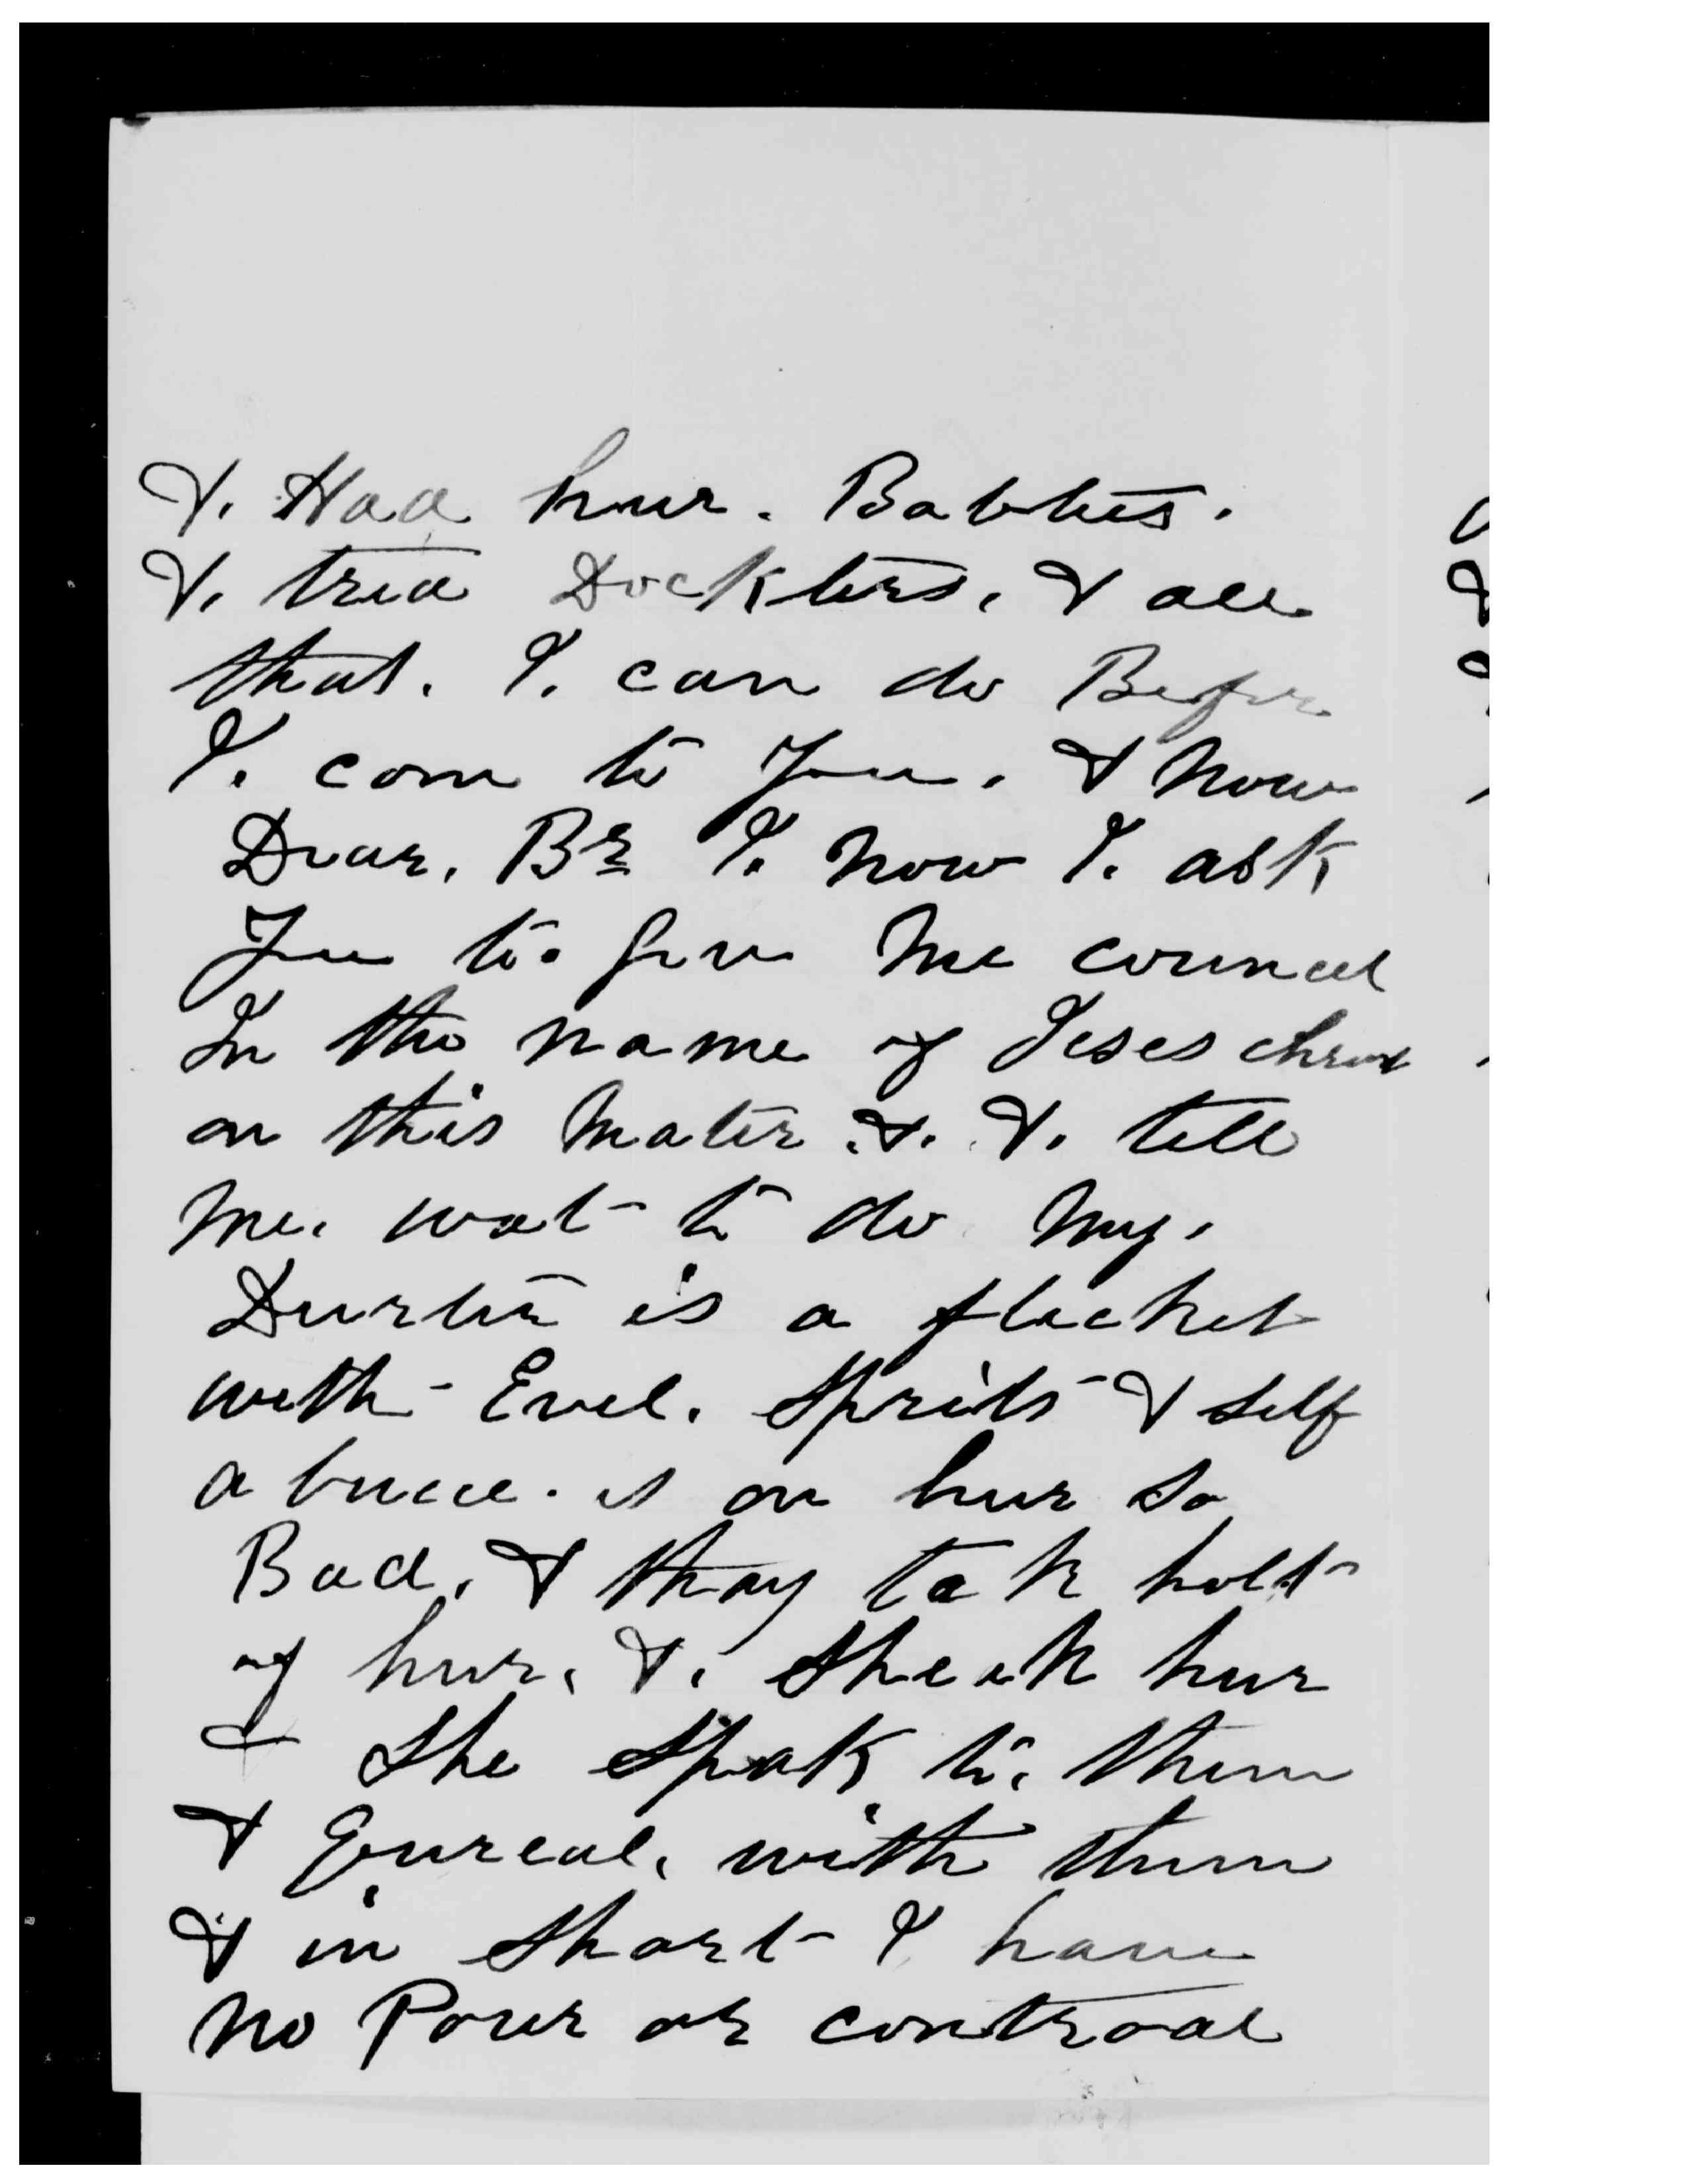 &. Had hur. Babtis.
&. tried Dockters. & all
that. I. can do Befor
I. com to You. & Now
Dear. Br I. now I. ask
You to. Give Me councel
In the name of Jeses christ
on this Mater. &. &. tell
me. wat to do My.
Durter is a flicket
with Evel. Sprits & self
a buce. is on hur So
Bad. & thay tak holt
of hur. &. Sheak hur
& She Speak to. them
& Qureal. with them
& in Short I have
No Pour or controal